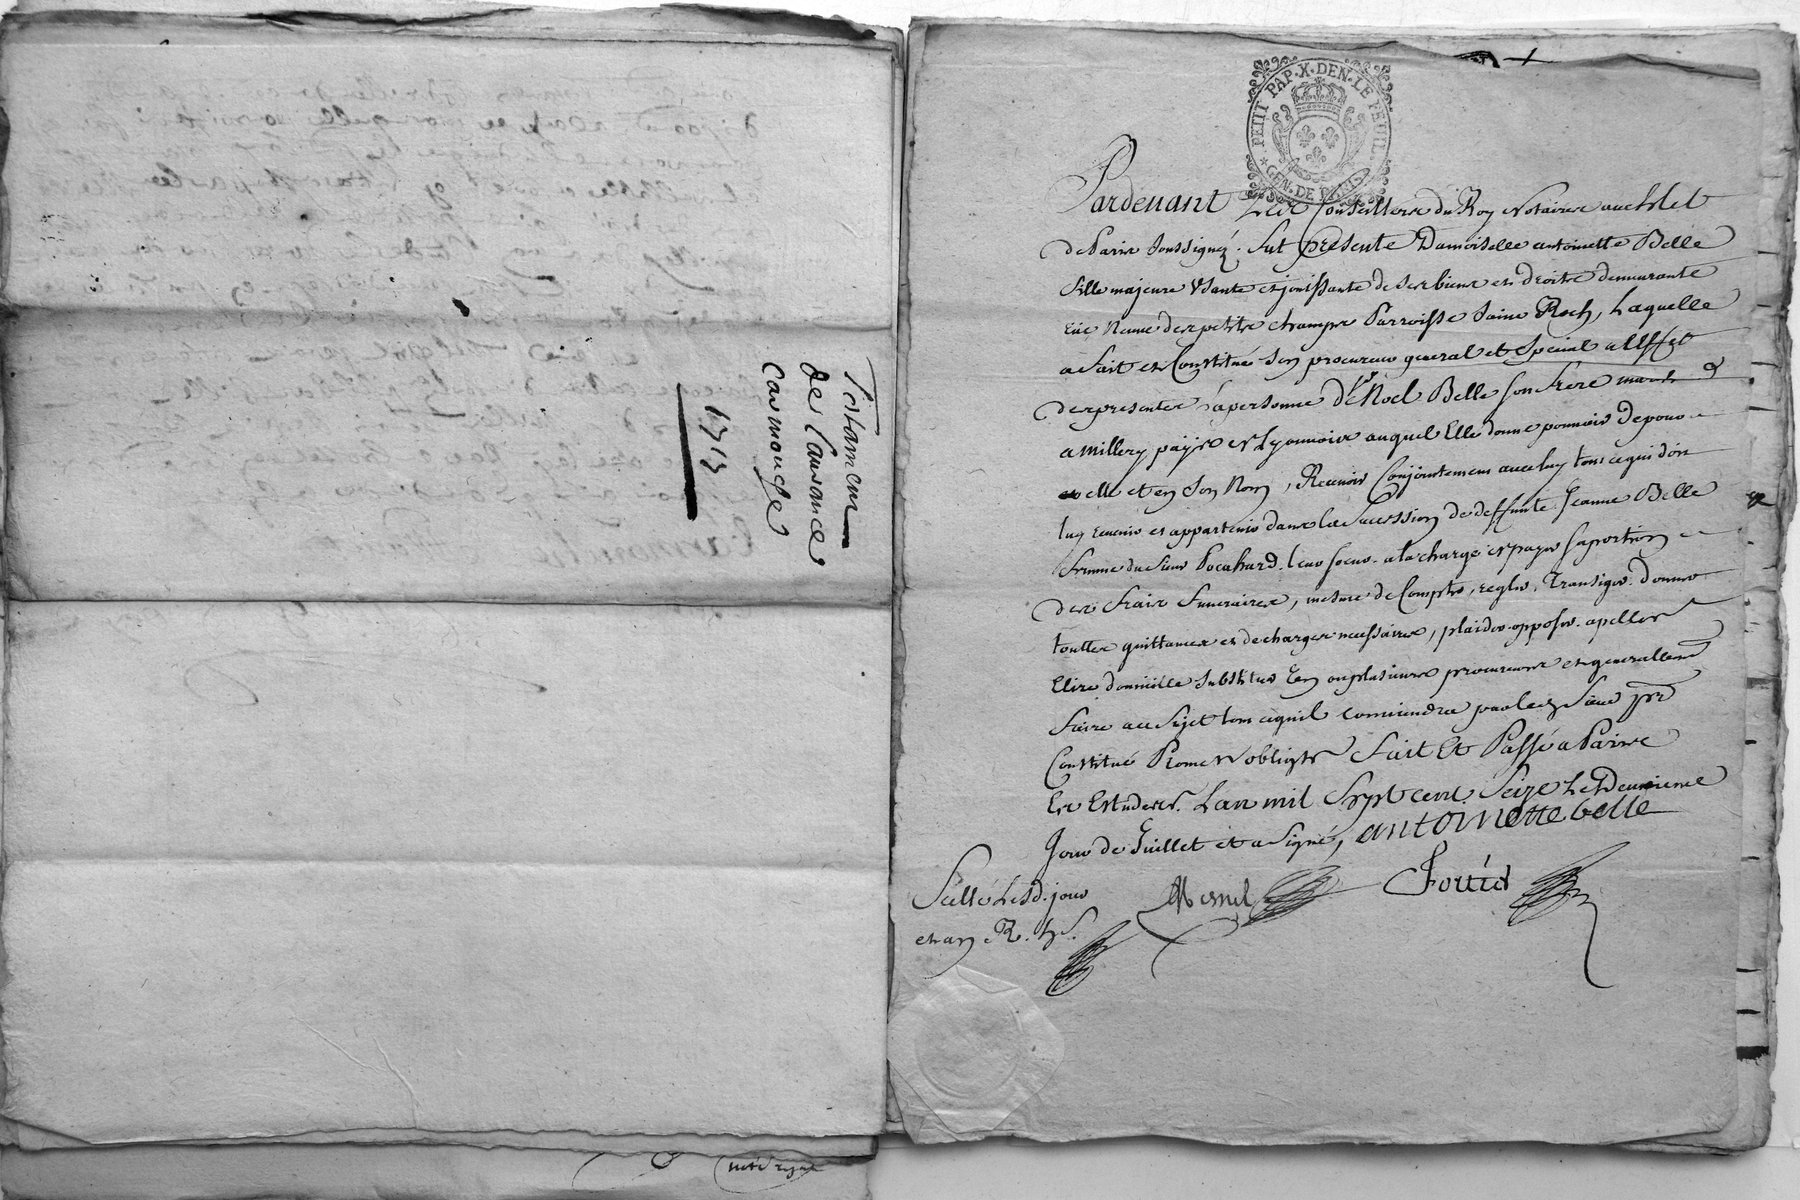 Testament
de Laurance
carmouche
1713
PETIT PAP. X. DEN. LE FEUIL.
GEN. DE PARIS
Pardevant Les Conseillers du Roy Notaires au chlet
de Paris soussignéz. fut presente Damoiselle antoinette Belle
fille majeure Usante et jouissante de ses biens et droits demeurante
rüe Neuve des petits champs Parroisse saint Roch, Laquelle
a fait et Constitué son procureur general et special a L'effet
de representer sa personne Noel Belle son frere
a millery païs et Lyonnois auquel Elle donne pouvoir de pour
elle et en son Nom, Recevoir Conjointement avec luy tout ce qui doit
luy revenir et appartenir dans la succession de deffunte Jeanne Belle
femme du sieur Pocahard. leur soeur. a la charge et payer sa portion
des frais funeraires, mesme de Compter, regler, transiger. donner
touttes quittances et decharges necessaires, plaider opposer. apeller
Elire domicille substituer Un ou plusieurs procureurs et generallemt
faire au sujet tout ce qu'il conviendra par led sieur pr
Constitué Promett obligt fait Et Passé a Paris
Es Estudes L'an mil sept cent. seize Le Deuxieme
Jour de Juillet et a signé, antoinette belle
Scellé Lesd. jour
et an
Mesnil
Fortier